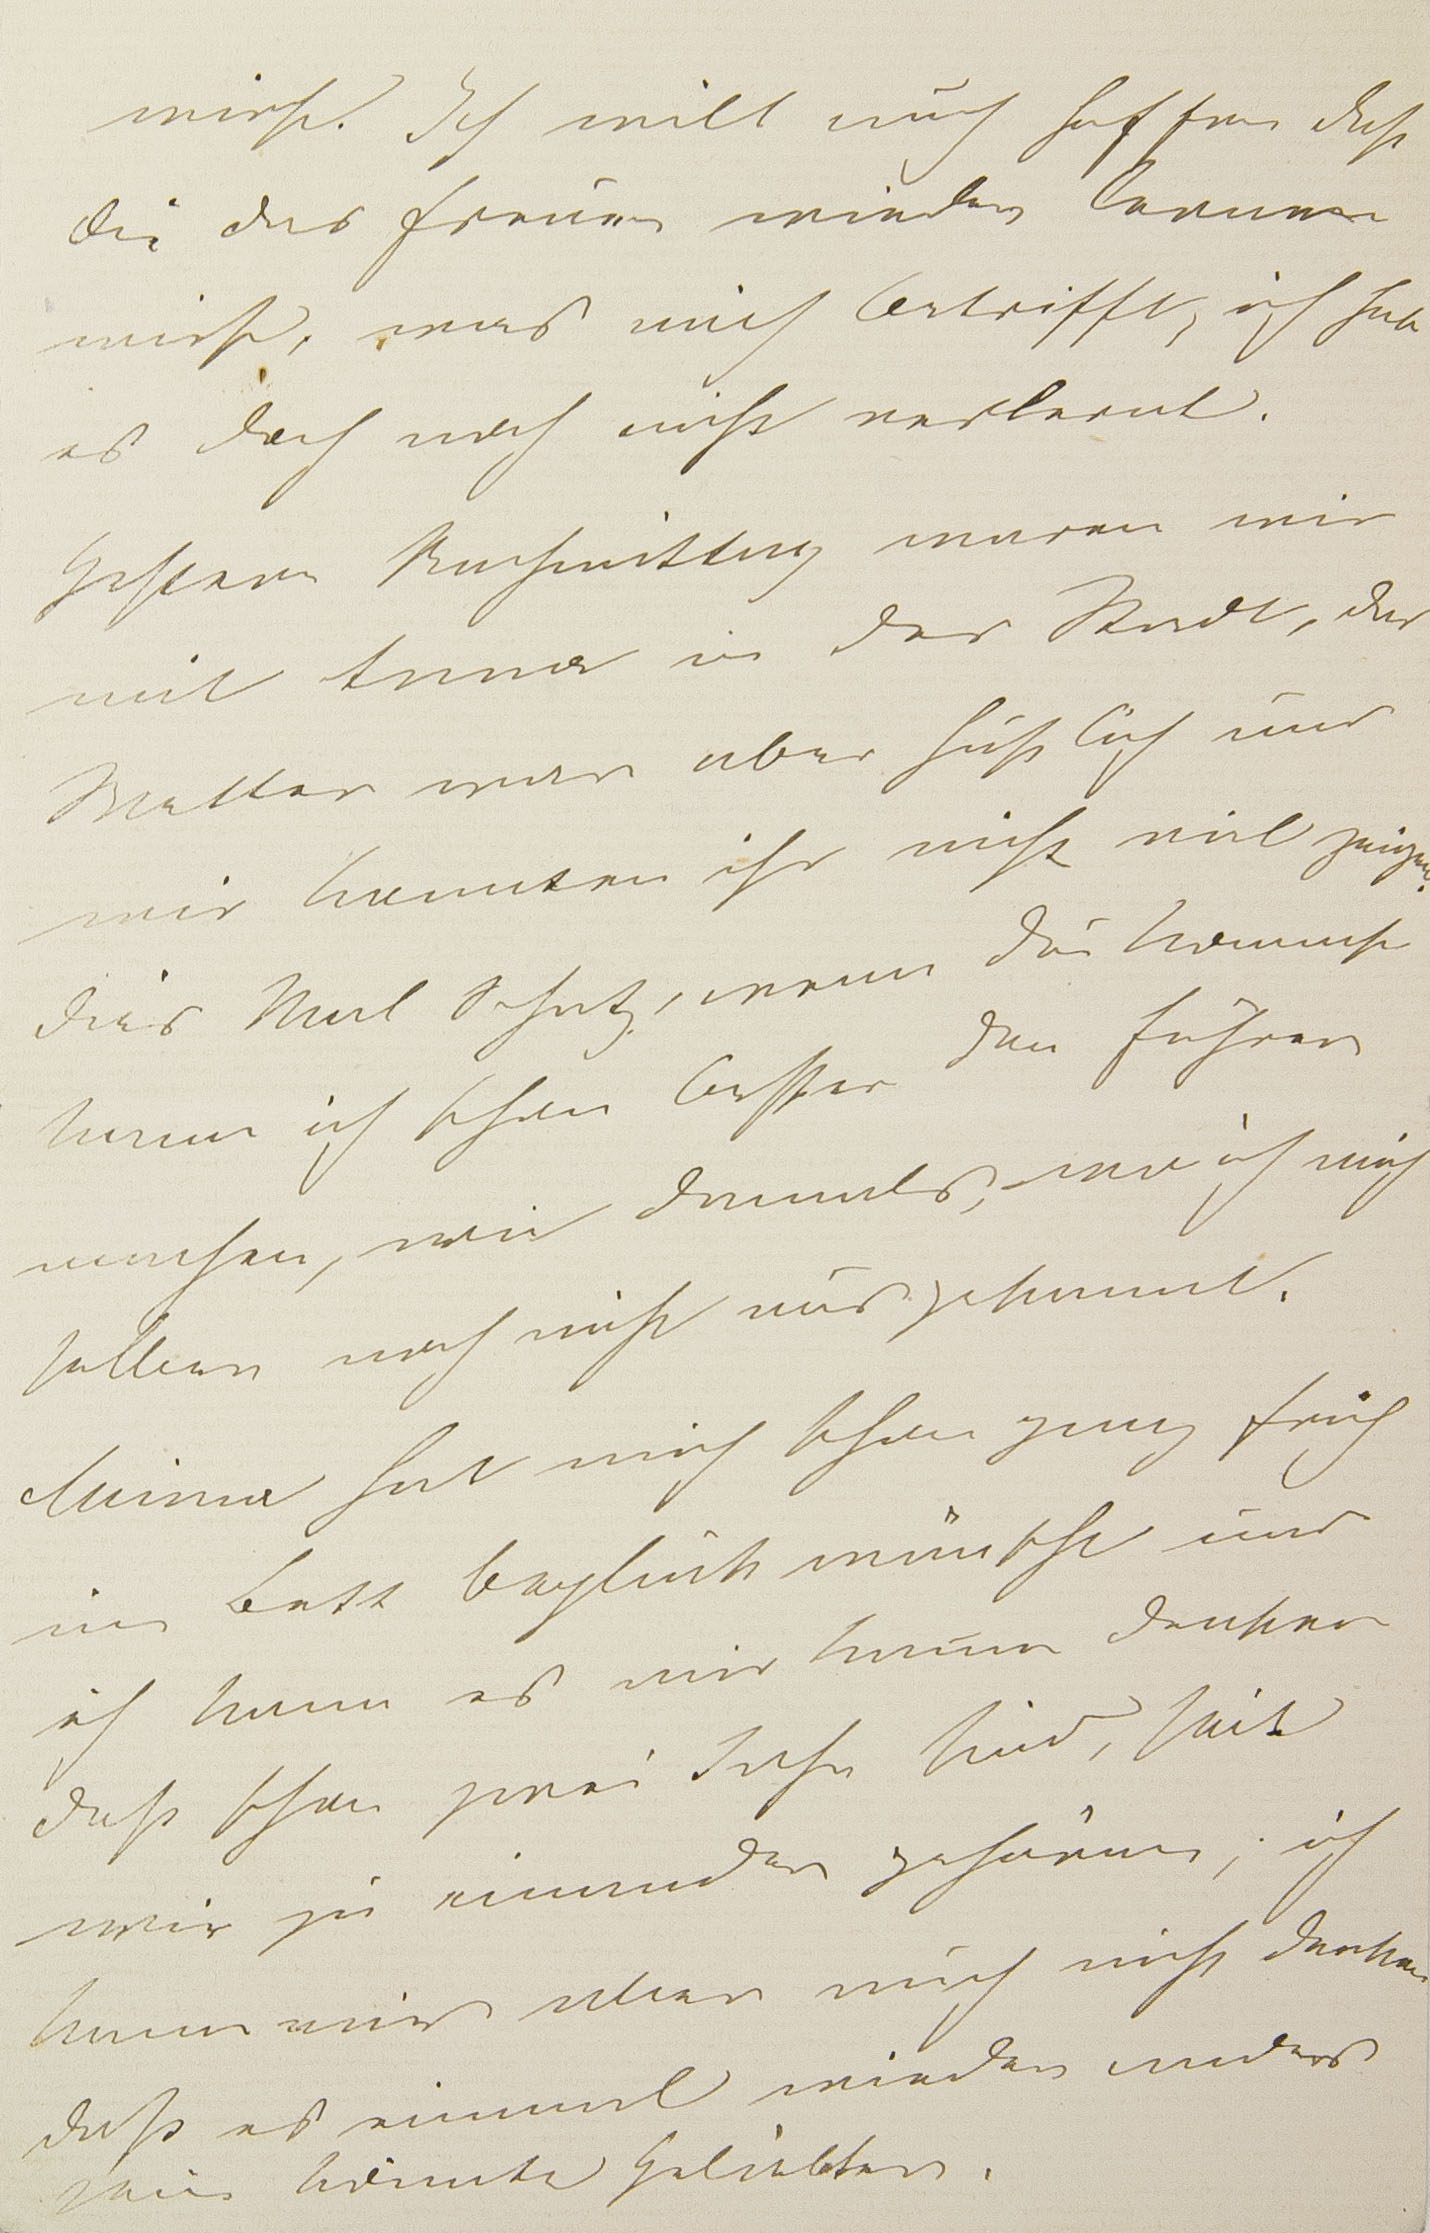 wirst. Ich will auch hoffen daß
Du das freuen wieder lernen
wirst, was mich betrifft, ich hab
es doch noch nicht verlernt.
Gestern Nachmittag waren wir
mit Anna in der Stadt, das
Wetter war aber häßlich und
wir konnten ihr nicht viel zeigen.
dies Mal Schatz, wenn Du kommst
kann ich schon besser den Führer
machen, wie damals, wo ich mich
selber noch nicht ausgekannt.
Mima hat mich schon ganz früh
im Bett beglückwünscht und
ich kann es mir kaum denken
daß schon zwei Jahr sind, seit
wir zu einander gehören; ich
kann mir aber auch nicht denken
daß es einmal wieder anders
sein könnte Geliebter.